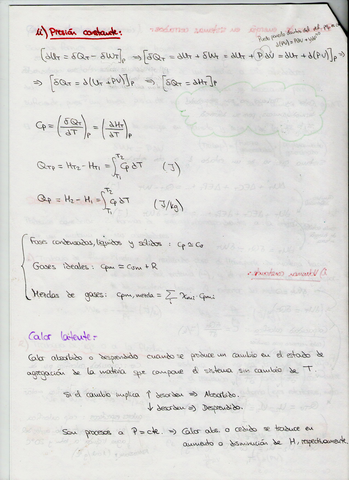 ii) Presión constante:
[dU_T = δQ_T - δW_T]_P ⇒ [δQ_T = dU_T + δW_T = dU_T + P dV = dU_T + d(PV)]_P ⇒
⇒ [δQ_T = d(U_T + PV)]_P ⇒ [δQ_T = dH_T]_P
C_P = (δQ_T/dT)_P = (dH_T/dT)_P
Q_TP = H_T2 - H_T1 = ∫_T1^T2 C_P dT (J)
Q_P = H_2 - H_1 = ∫_T1^T2 c_P dT (J/kg)
Fases condensadas, líquidos y sólidos: c_P ≅ c_v
Gases ideales: c_pm = c_vm + R
Mezclas de gases: c_pm, mezcla = Σ_i x_mi · c_pmi
Calor latente.-
Calor absorbido o desprendido cuando se produce un cambio en el estado de
agregación de la materia que compone el sistema sin cambio de T
Si el cambio implica ↑ desorden ⇒ Absorbido.
↓ desorden ⇒ Desprendido.
Son procesos a P = cte. ⇒ Calor abs. o cedido se traduce en
aumento o disminución de H, respectivamente.